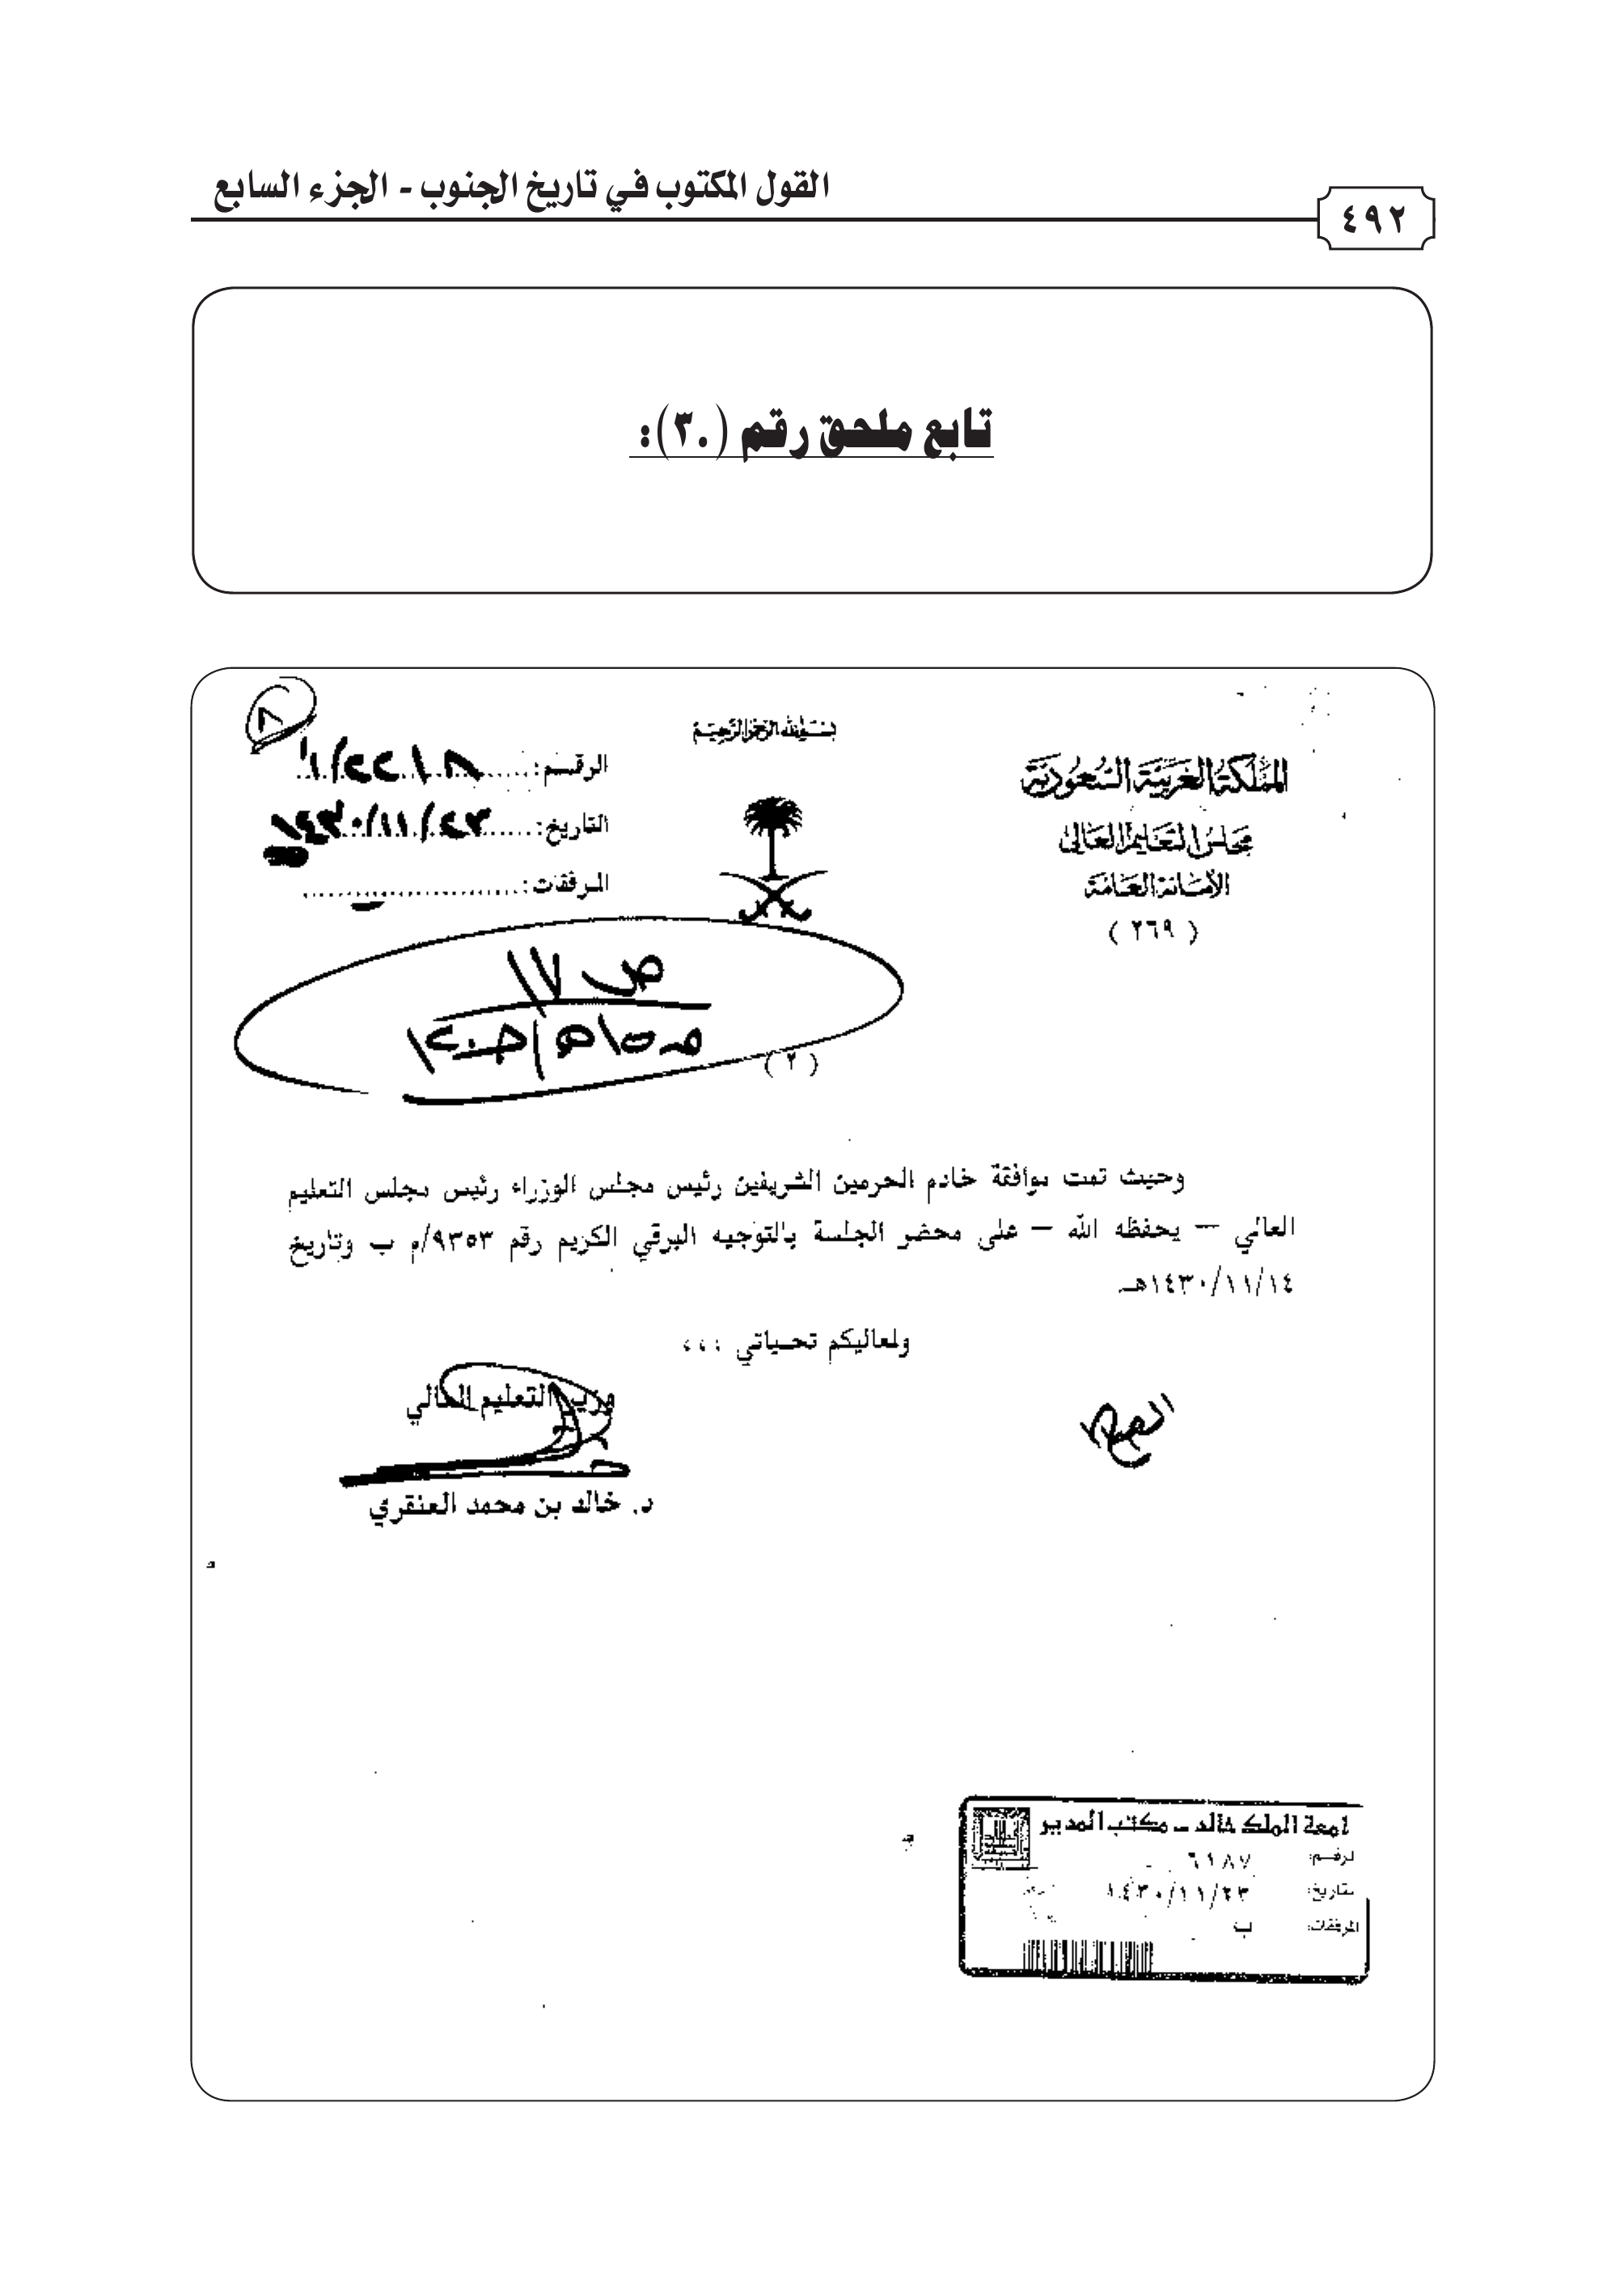 القول المكتوب في تاريخ الجنوب - الجزء السابع
٤٩٢
تابع ملحق رقم (٣٠):
بسم الله الرحمن الرحيم
المملكة العربية السعودية
مجلس التعليم العالي
الأمانة العامة
( ٢٦٩ )
الرقم:
التاريخ: ١٤٣٠/١١/٢٣
المرفقات:
ص ١٧
( ٢ )
وحيث تمت موافقة خادم الحرمين الشريفين رئيس مجلس الوزراء رئيس مجلس التعليم
العالي – يحفظه الله – على محضر الجلسة بالتوجيه البرقي الكريم رقم ٩٣٥٣/م ب وتاريخ
١٤٣٠/١١/١٤هـ
ولمعاليكم تحياتي ،،،
وزير التعليم العالي
د. خالد بن محمد العنقري
امعة الملك خالد - مكتب المدير
لرقم: ٦١٨٧
تاريخ: ١٤٣٠/١١/٢٣
المرفقات: ب